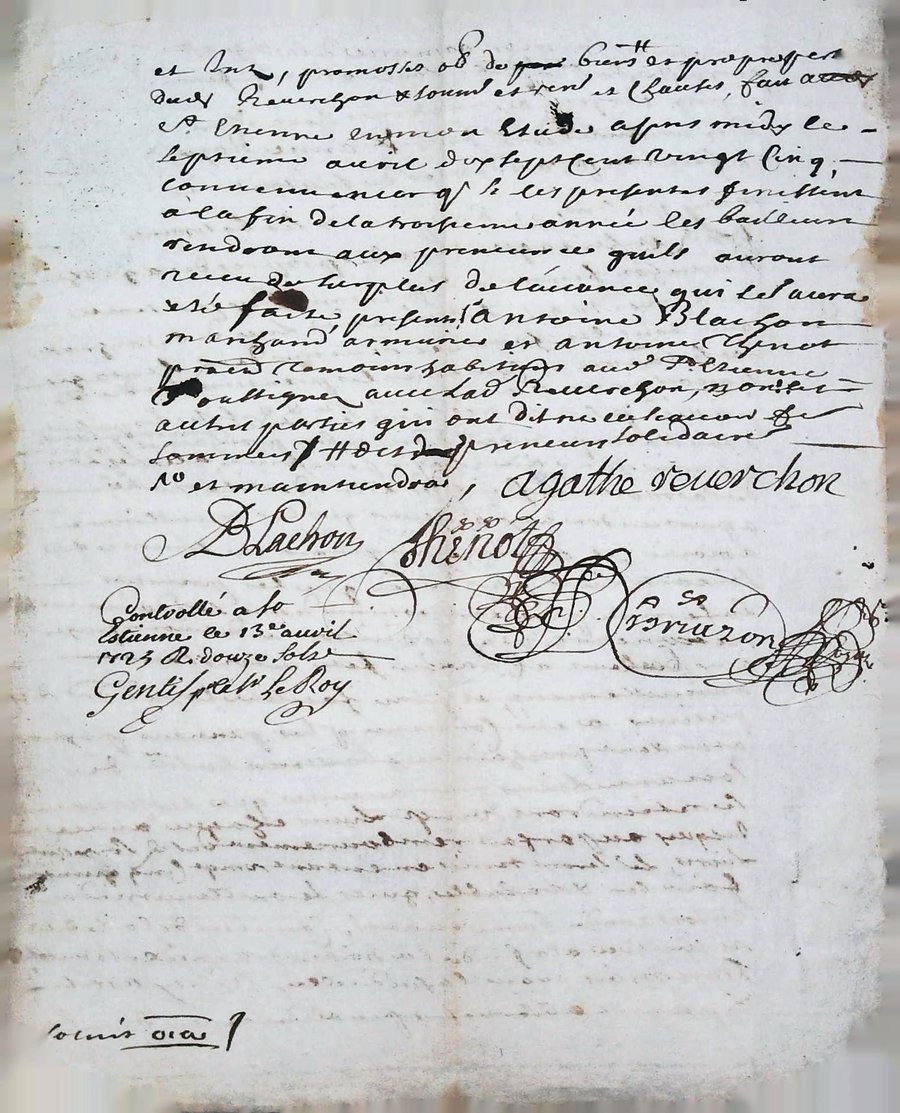 et Int, promosses ob de biens et propres pert
dud Reuerchon & soum et ren et Clauses, fait
St Etienne en mon Etude apres midy le
septieme auril dix sept Cent Vingt Cinq,
Conuenu encor q si les presentes finissent
a la fin de la troisieme année les bailleurs
rendront aux preneurs quils auront
receu de surplus de l'auance qui se aura
esté faite presents Antoine Blachon
marchand armurier et antoine Thenot
prat temoins habitans aud St Etienne
soussignez auec lad Reuerchon, non les
autres parties qui ont dit ne le scauoir de
sommes / # et d preneurs solidaires
No et maintiendra, agathe reuerchon
ABLachon Thenot
Brauzon
Controllé a St
Estienne le 13e auril
1725 R. douze sols
Gentis pr le Sr LeRoy
soluit